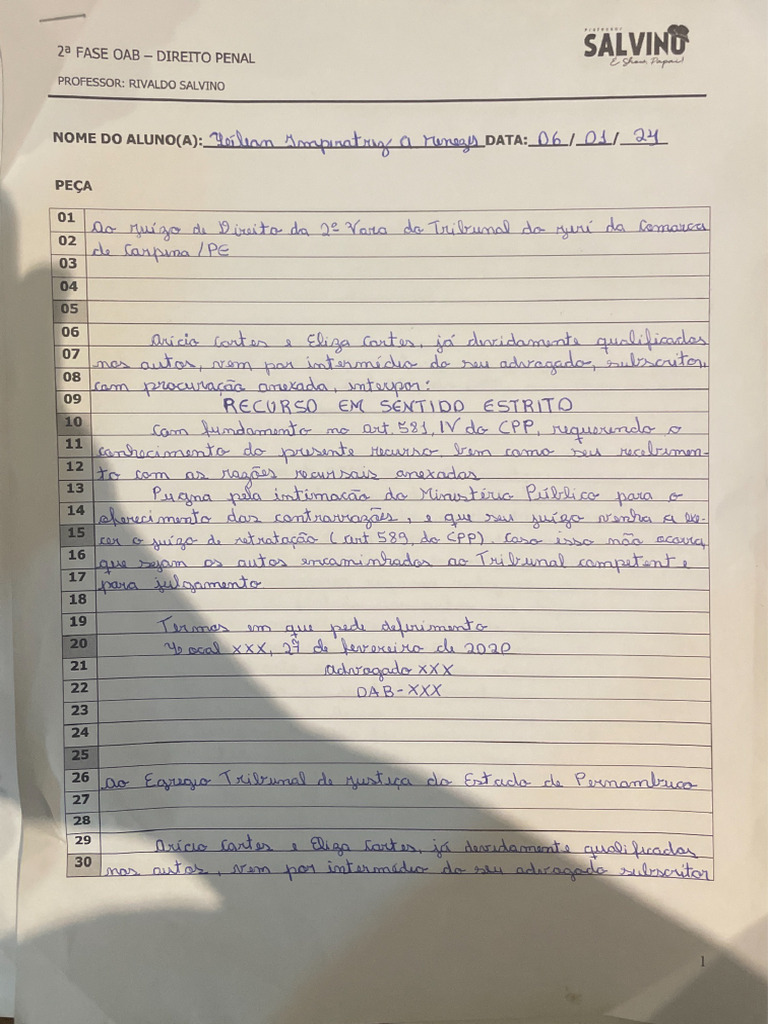 2ª FASE OAB – DIREITO PENAL
PROFESSOR: RIVALDO SALVINO
PROFESSOR
SALVINO
É Show, Papai!
NOME DO ALUNO(A): Imperatriz A Menezes DATA: 06/01/24
PEÇA
01 Ao Juízo de Direito da 2ª Vara do Tribunal do Juri da Comarca
02 de Carpina/PE
03
04
05
06 Aricia Cortes e Eliza Cortes, já devidamente qualificados
07 nos autos, vem por intermédio do seu advogado, subscritor,
08 com procuração anexada, interpor:
09 RECURSO EM SENTIDO ESTRITO
10 Com fundamento no art. 581, IV do CPP, requerendo o
11 conhecimento do presente recurso, bem como seu recebimen-
12 to com as razões recursais anexadas
13 Pugna pela intimação do Ministério Público para o
14 oferecimento das contrarrazões, e que seu juízo venha a exe-
15 cer o juízo de retratação (art 589, do CPP). Caso isso não ocorra,
16 que sejam os autos encaminhados ao Tribunal competente
17 para julgamento
18
19 Termos em que pede deferimento
20 Local XXX, 27 de fevereiro de 2020
21 Advogado XXX
22 OAB-XXX
23
24
25
26 Ao Egregio Tribunal de Justiça do Estado de Pernambuco
27
28
29 Aricio Cortes e Eliza Cortes, já devidamente qualificados
30 nos autos, vem por intermédio do seu advogado subscritor
1